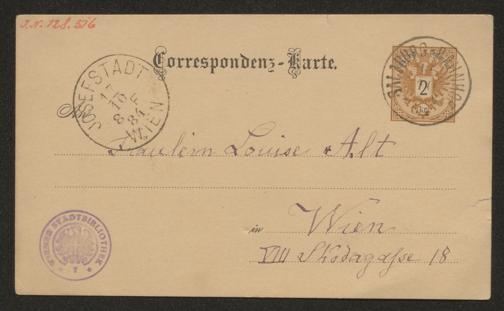 J.N. 128.516
Correspondenz-Karte.
JOSEFSTADT
WIEN
SALZBURG-BAHNHOF
2
An
Fräulein Louise Alt
in Wien
VIII Skodagasse 18
WIENER STADTBIBLIOTHEK